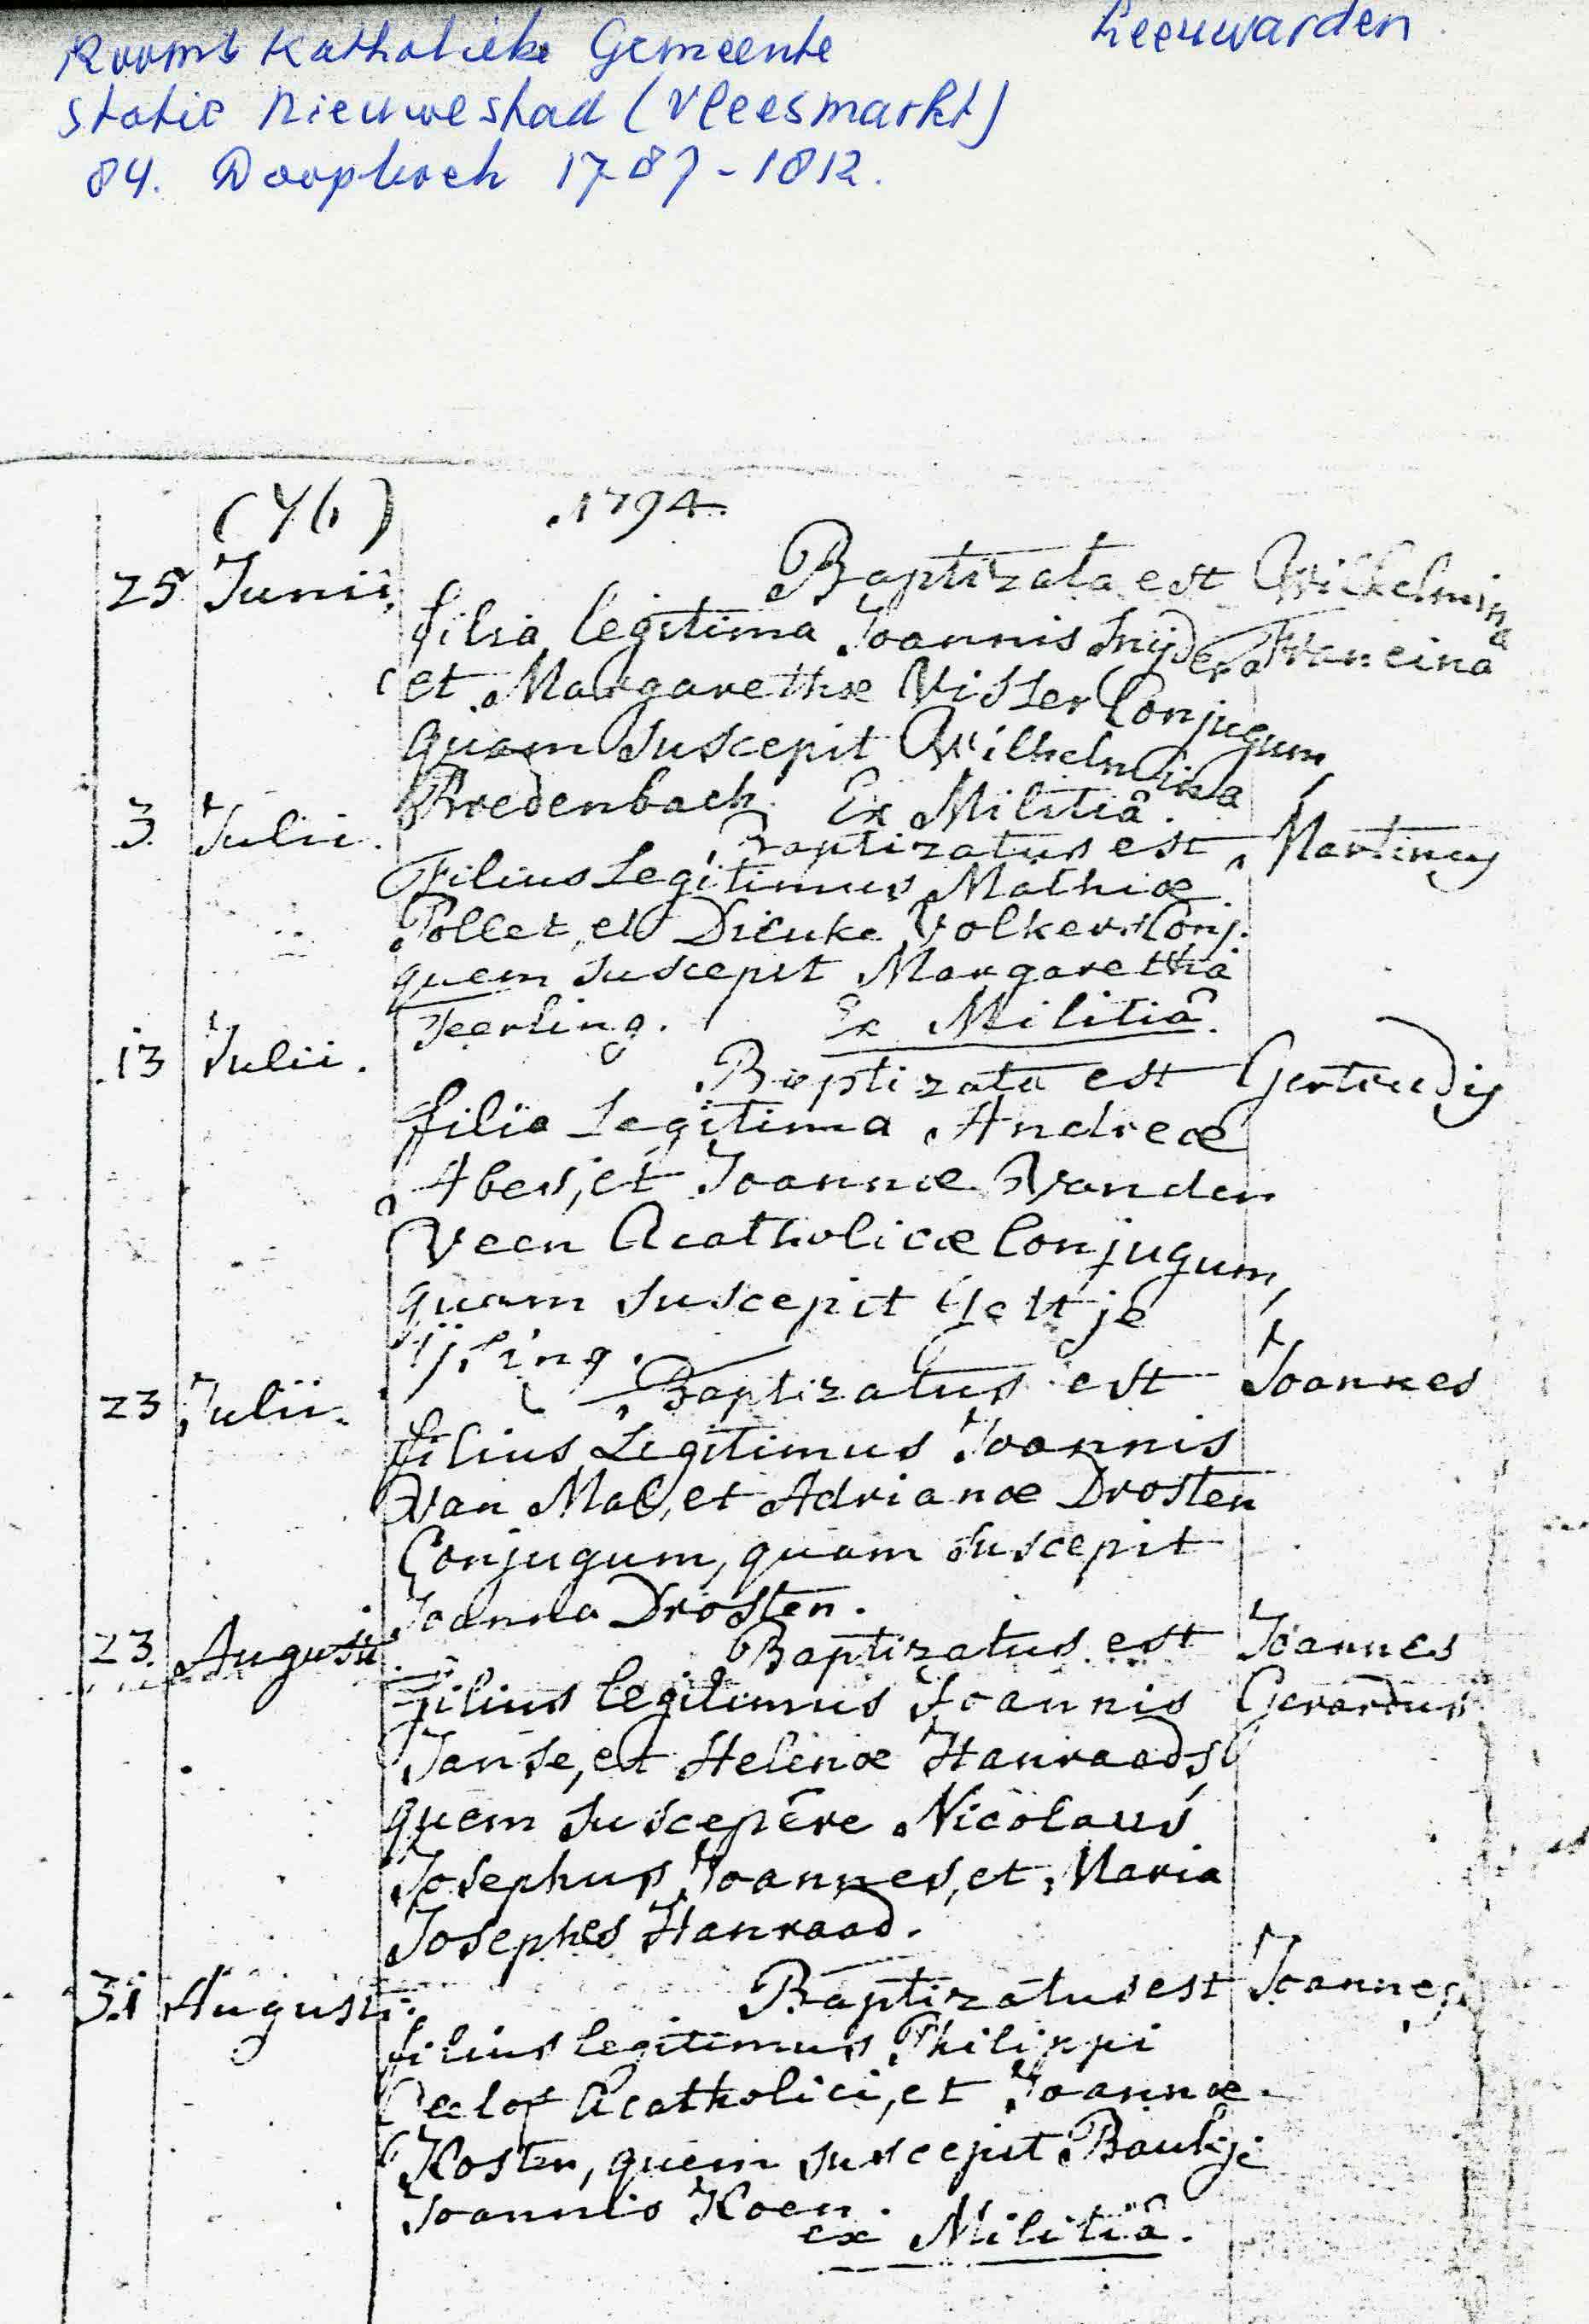 Rooms Katholieke Gemeente Leeuwarden
Statie Nieuwestad (Vleesmarkt)
84. Doopboek 1787-1812.
1794.
25 Junii, Baptizata est Wilhelmina
filia legitima Joannis Snyders Francina
et Margarethæ Visser Conjugum,
quam suscepit Wilhelmina
Bredenbach. Ex Militiâ.
3 Julii. Baptizatus est Martinus
Filius Legitimus Mathiæ
Pollet, et Dieuke Volkers Conj.
quem suscepit Margaretha
Teerling. Ex Militiâ.
13 Julii. Baptizata est Gertrudis
filia Legitima Andreæ
Abes, et Joannæ Vander
Veen Acatholicæ Conjugum,
quam suscepit Yeltje
Ysing.
23 Julii. Baptizatus est Joannes
filius Legitimus Joannis
Van Mal, et Adrianæ Drosten
Conjugum, quam suscepit
Joanna Drosten.
23. Augusti Baptizatus est Joannes
Filius legitimus Joannis Gerardus
Janse, et Helenæ Hanraads
quem suscepêre Nicolaus
Josephus Joannes, et Maria
Josephes Hanraad.
31 Augusti. Baptizatus est Joannes
filius legitimus Philippi
Acatholici, et Joannæ
Kosten, quem suscepit Baukje
Joannis Koen.
ex Militiâ.